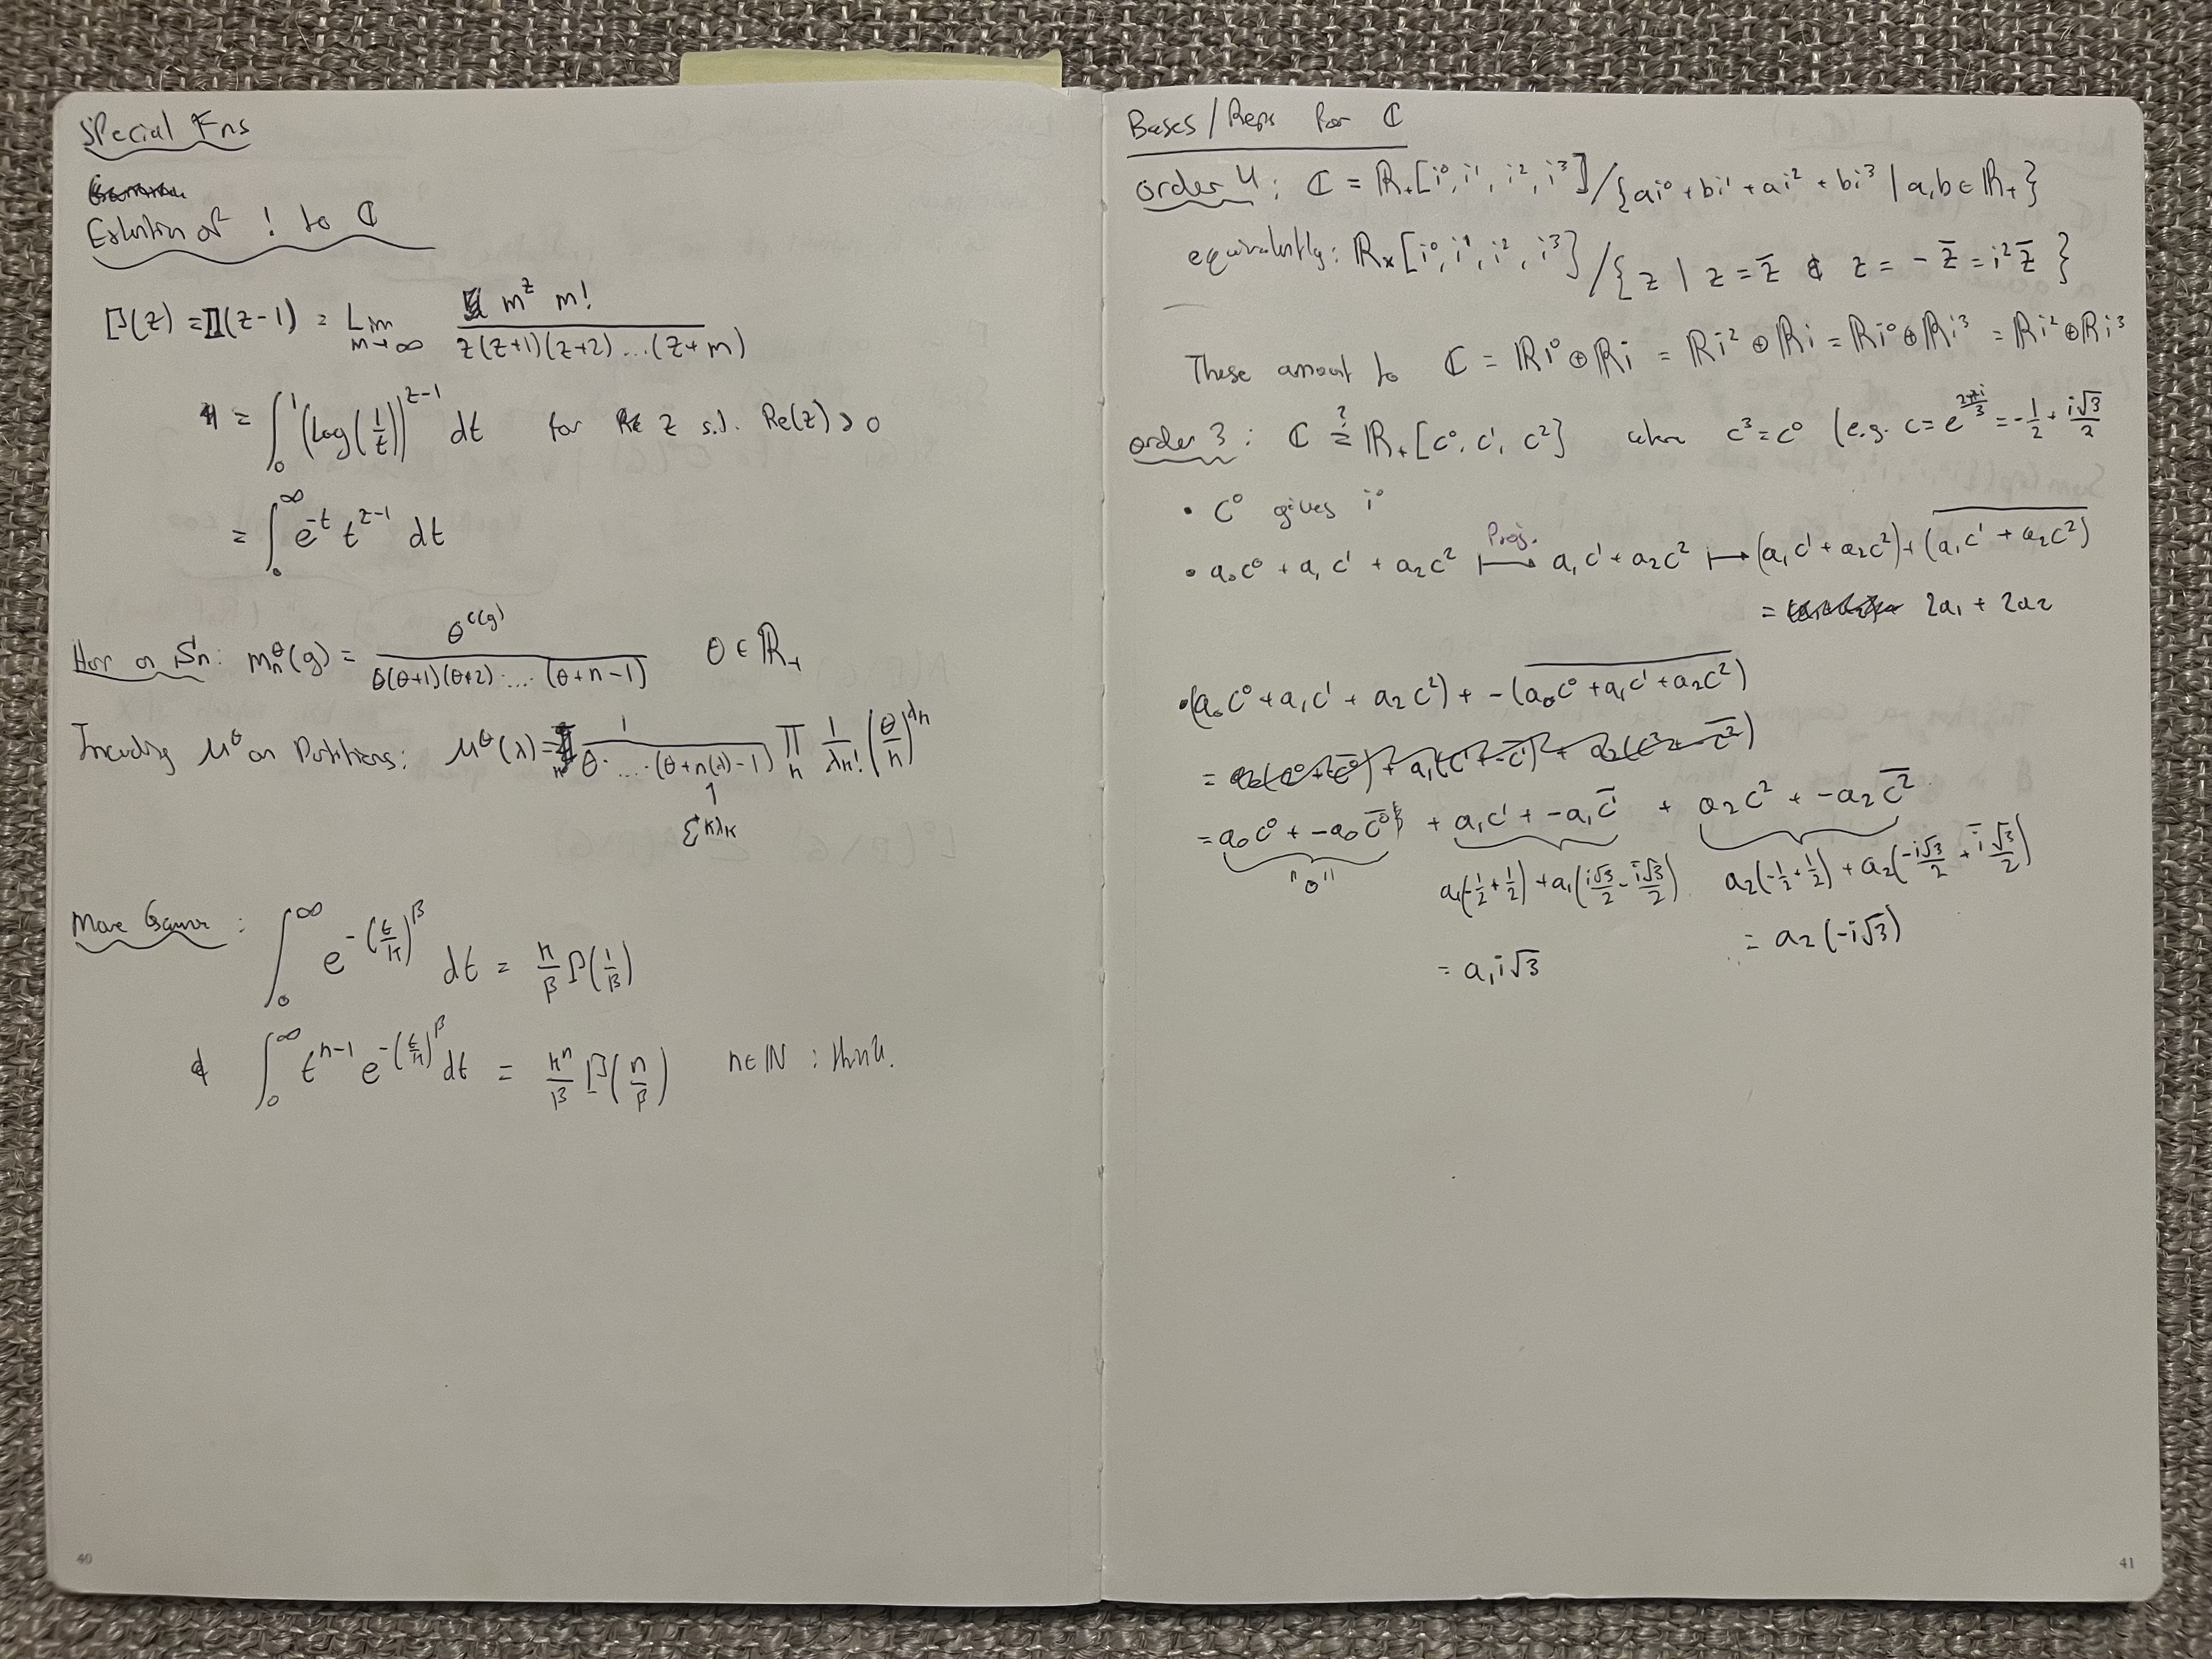 Special Fns
Extension of ! to ℂ
Γ(z) = Π(z-1) = Lim_{m→∞} m^z m! / z(z+1)(z+2)...(z+m)
" = ∫_0^1 (log(1/t))^{z-1} dt for z s.t. Re(z) > 0
= ∫_0^∞ e^{-t} t^{z-1} dt
on S_n: m_n^θ(g) = θ^{c(g)} / θ(θ+1)(θ+2)....(θ+n-1) θ ∈ ℝ_+
μ^θ on Partitions: μ^θ(λ) = 1 / θ.....(θ+n(λ)-1) Π_k 1/λ_k! (θ/k)^{λ_k}
Σkλ_k
More Gamma:
∫_0^∞ e^{-(t/κ)^β} dt = κ/β Γ(1/β)
& ∫_0^∞ t^{n-1} e^{-(t/κ)^β} dt = κ^n/β Γ(n/β) n∈ℕ :
40
Bases/Reps for ℂ
order 4: ℂ = ℝ_+[i^0, i^1, i^2, i^3] / {ai^0 + bi^1 + ai^2 + bi^3 | a,b ∈ ℝ_+}
equivalently: ℝ_x[i^0, i^1, i^2, i^3] / {z | z = z̄ & z = -z̄ = i^2 z̄}
These amount to ℂ = ℝi^0 ⊕ ℝi = ℝi^2 ⊕ ℝi = ℝi^0 ⊕ ℝi^3 = ℝi^2 ⊕ ℝi^3
order 3: ℂ ≅? ℝ_+[c^0, c^1, c^2] when c^3 = c^0 (e.g. c = e^{2πi/3} = -1/2 + i√3/2
• c^0 gives i^0
Proj.
• a_0c^0 + a_1c^1 + a_2c^2 ↦ a_1c^1 + a_2c^2 ↦ (a_1c^1 + a_2c^2) + (a_1c^1 + a_2c^2)
= 2a_1 + 2a_2
• (a_0c^0 + a_1c^1 + a_2c^2) + -(a_0c^0 + a_1c^1 + a_2c^2)
= a_0c^0 + -a_0c^0 + a_1c^1 + -a_1c^1 + a_2c^2 + -a_2c^2
"0" a_1(-1/2 + 1/2) + a_1(i√3/2 - -i√3/2) a_2(-1/2 + 1/2) + a_2(-i√3/2 + -i√3/2)
= a_1 i√3 = a_2(-i√3)
41